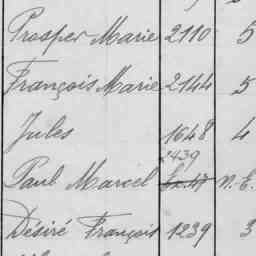 Prosper Marie 2110 5
François Marie 2144 5
Jules 1648 4
2439
Paul Marcel n.E.
Désiré François 1239 3